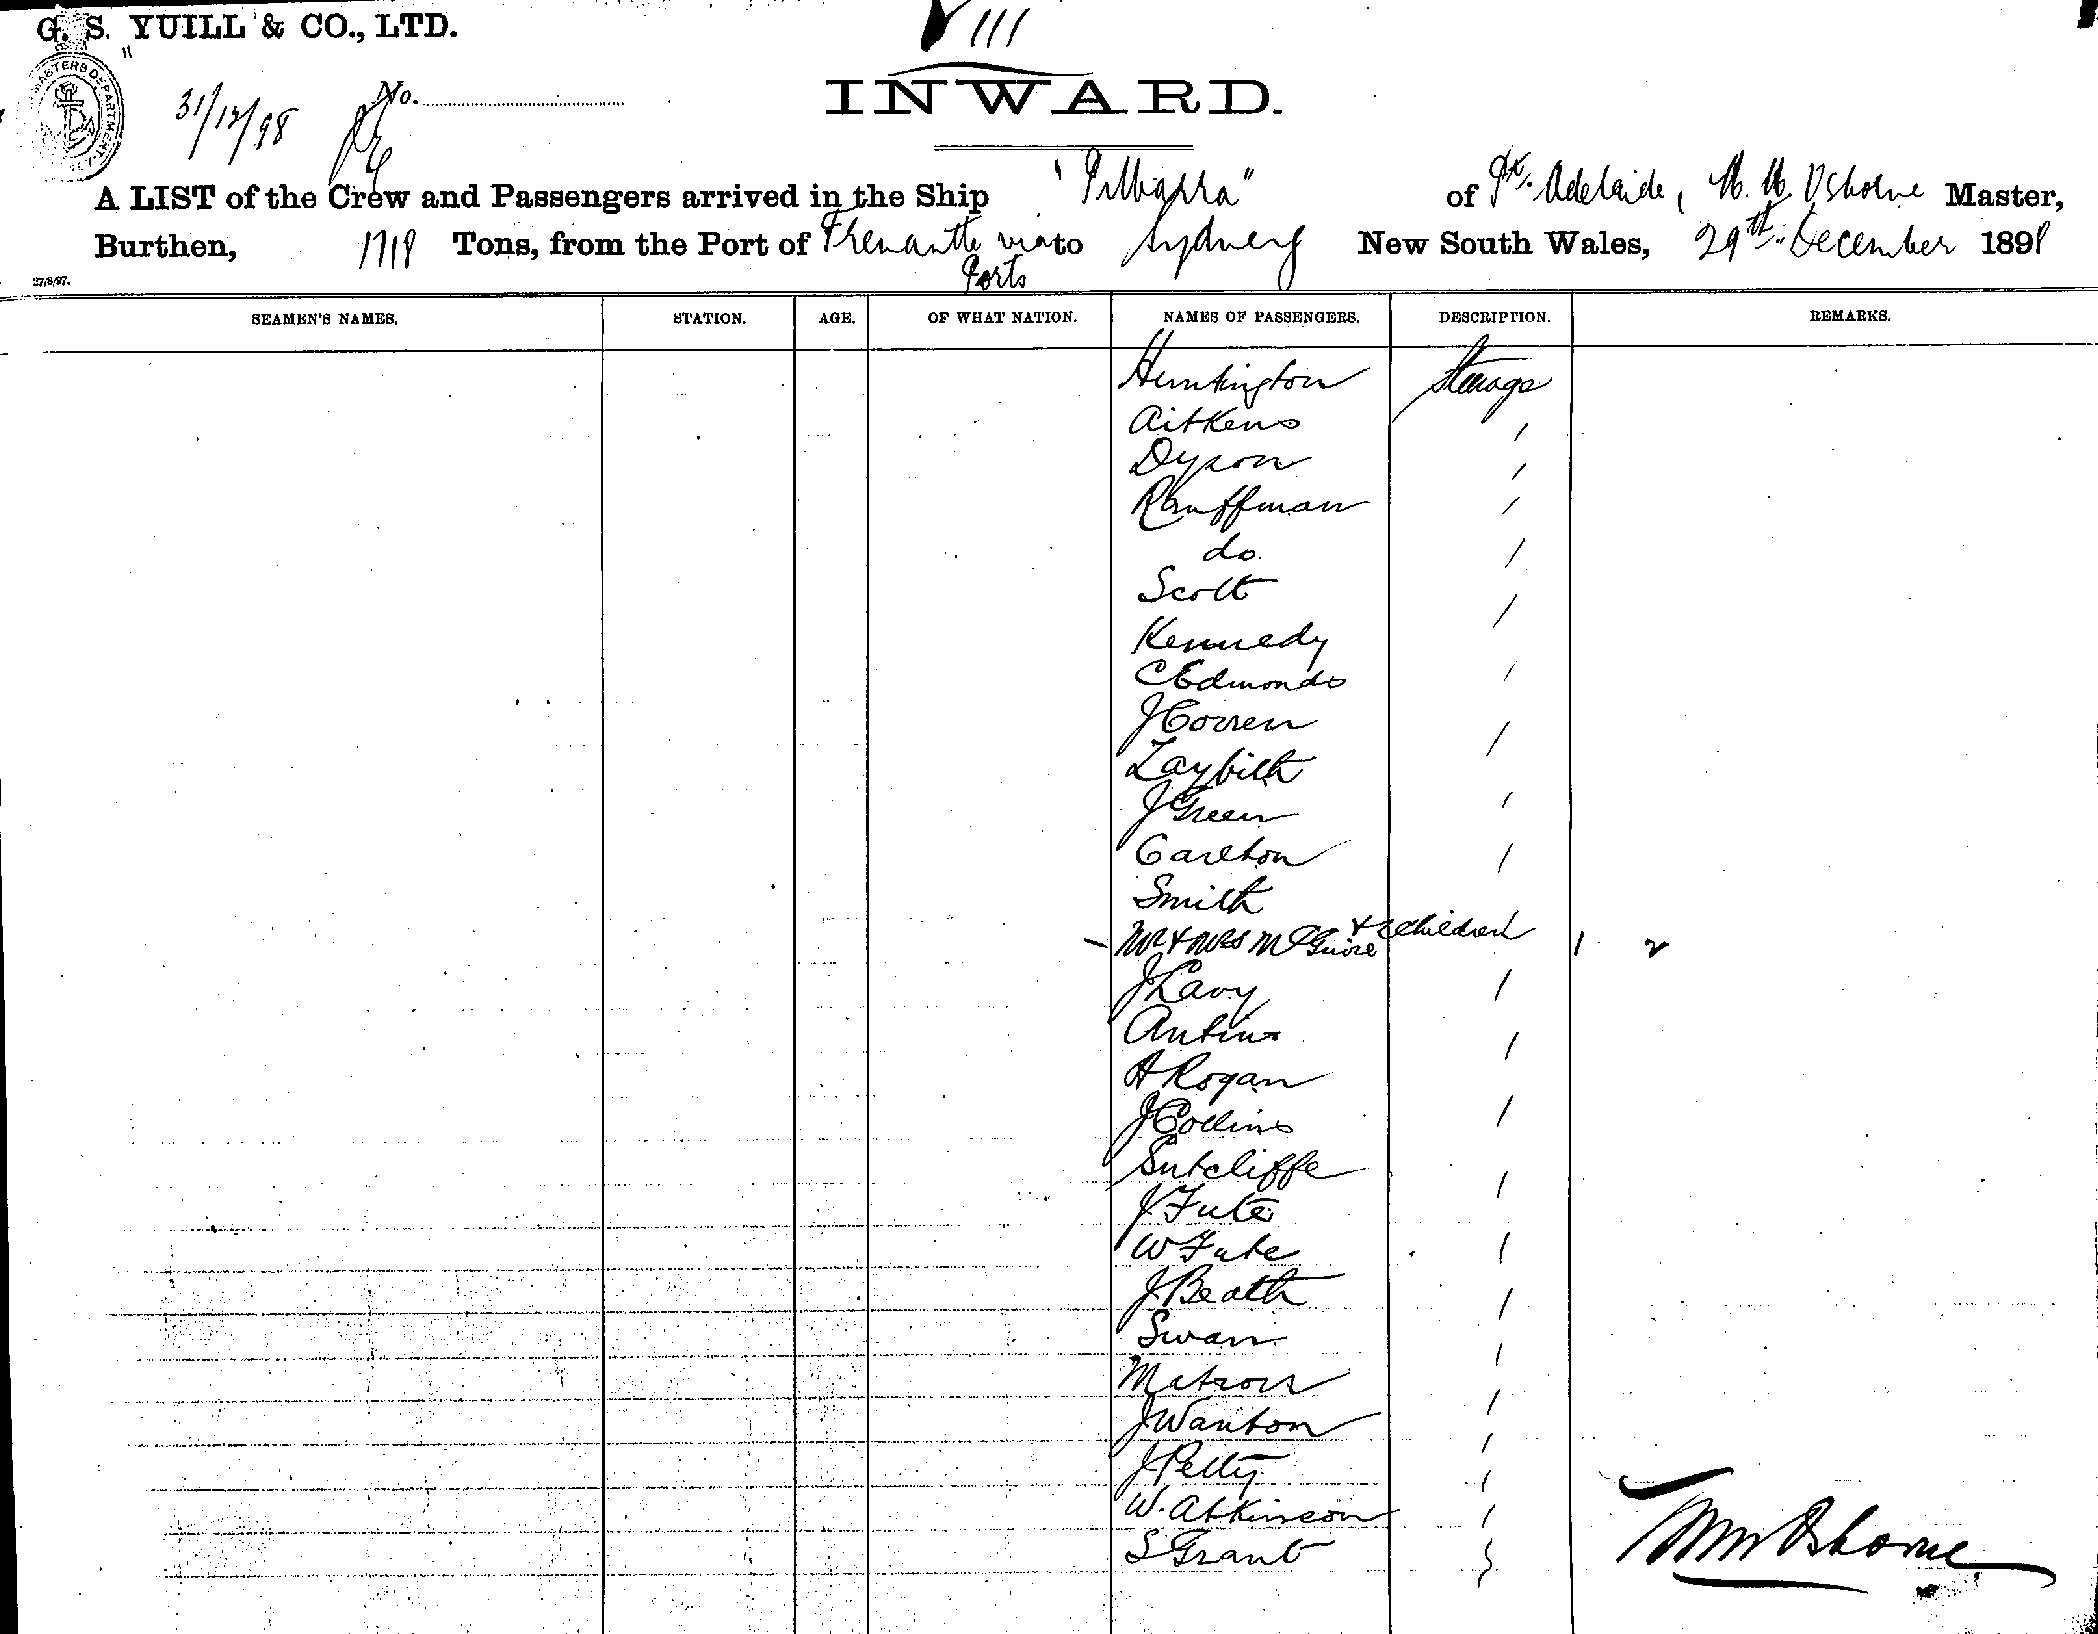 G. S. YUILL & CO., LTD.
111
INWARD.
31/12/98 No.
A LIST of the Crew and Passengers arrived in the Ship "Pilbarra" of Pt. Adelaide, W. M. Osborne Master,
Burthen, 1718 Tons, from the Port of Fremantle via to Sydney New South Wales, 29th December 1898
Ports
27/8/97.
SEAMEN'S NAMES. STATION. AGE. OF WHAT NATION. NAMES OF PASSENGERS. DESCRIPTION. REMARKS.
Huntington Steerage
Aitkens
Dyson
Kauffman
do.
Scott
Kennedy
C Edmonds
J Corren
Laybith
J Green
Carlton
Smith
Mr & Mrs McGuire & 2 Children 1 2
J Lavy
Antins
A Rogan
J Collins
Sutcliffe
J Fute
W Fute
J Beath
Swan
Matson
J Wanton
J Petty
W. Atkinson
S Grant
Wm Osborne